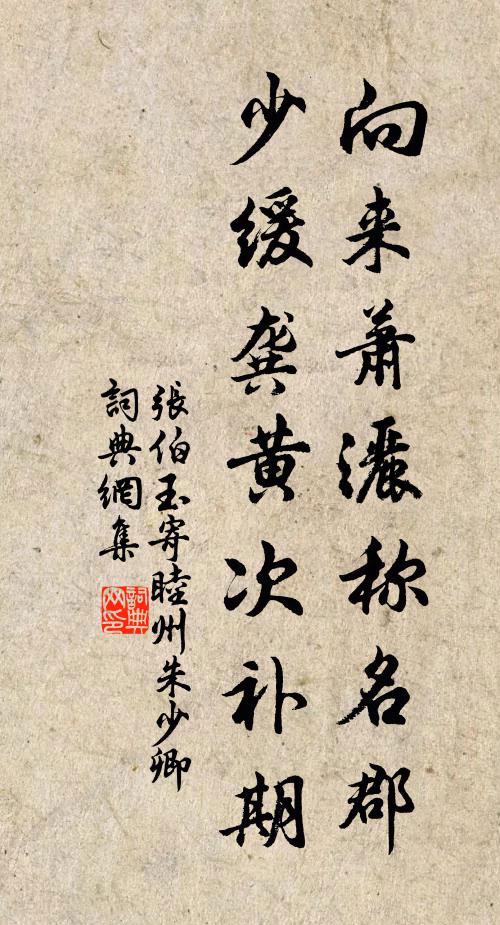 向来萧灑称名郡
少缓龚黄次补期
張伯玉寄睦州朱少卿
詞典網集
詞典網印